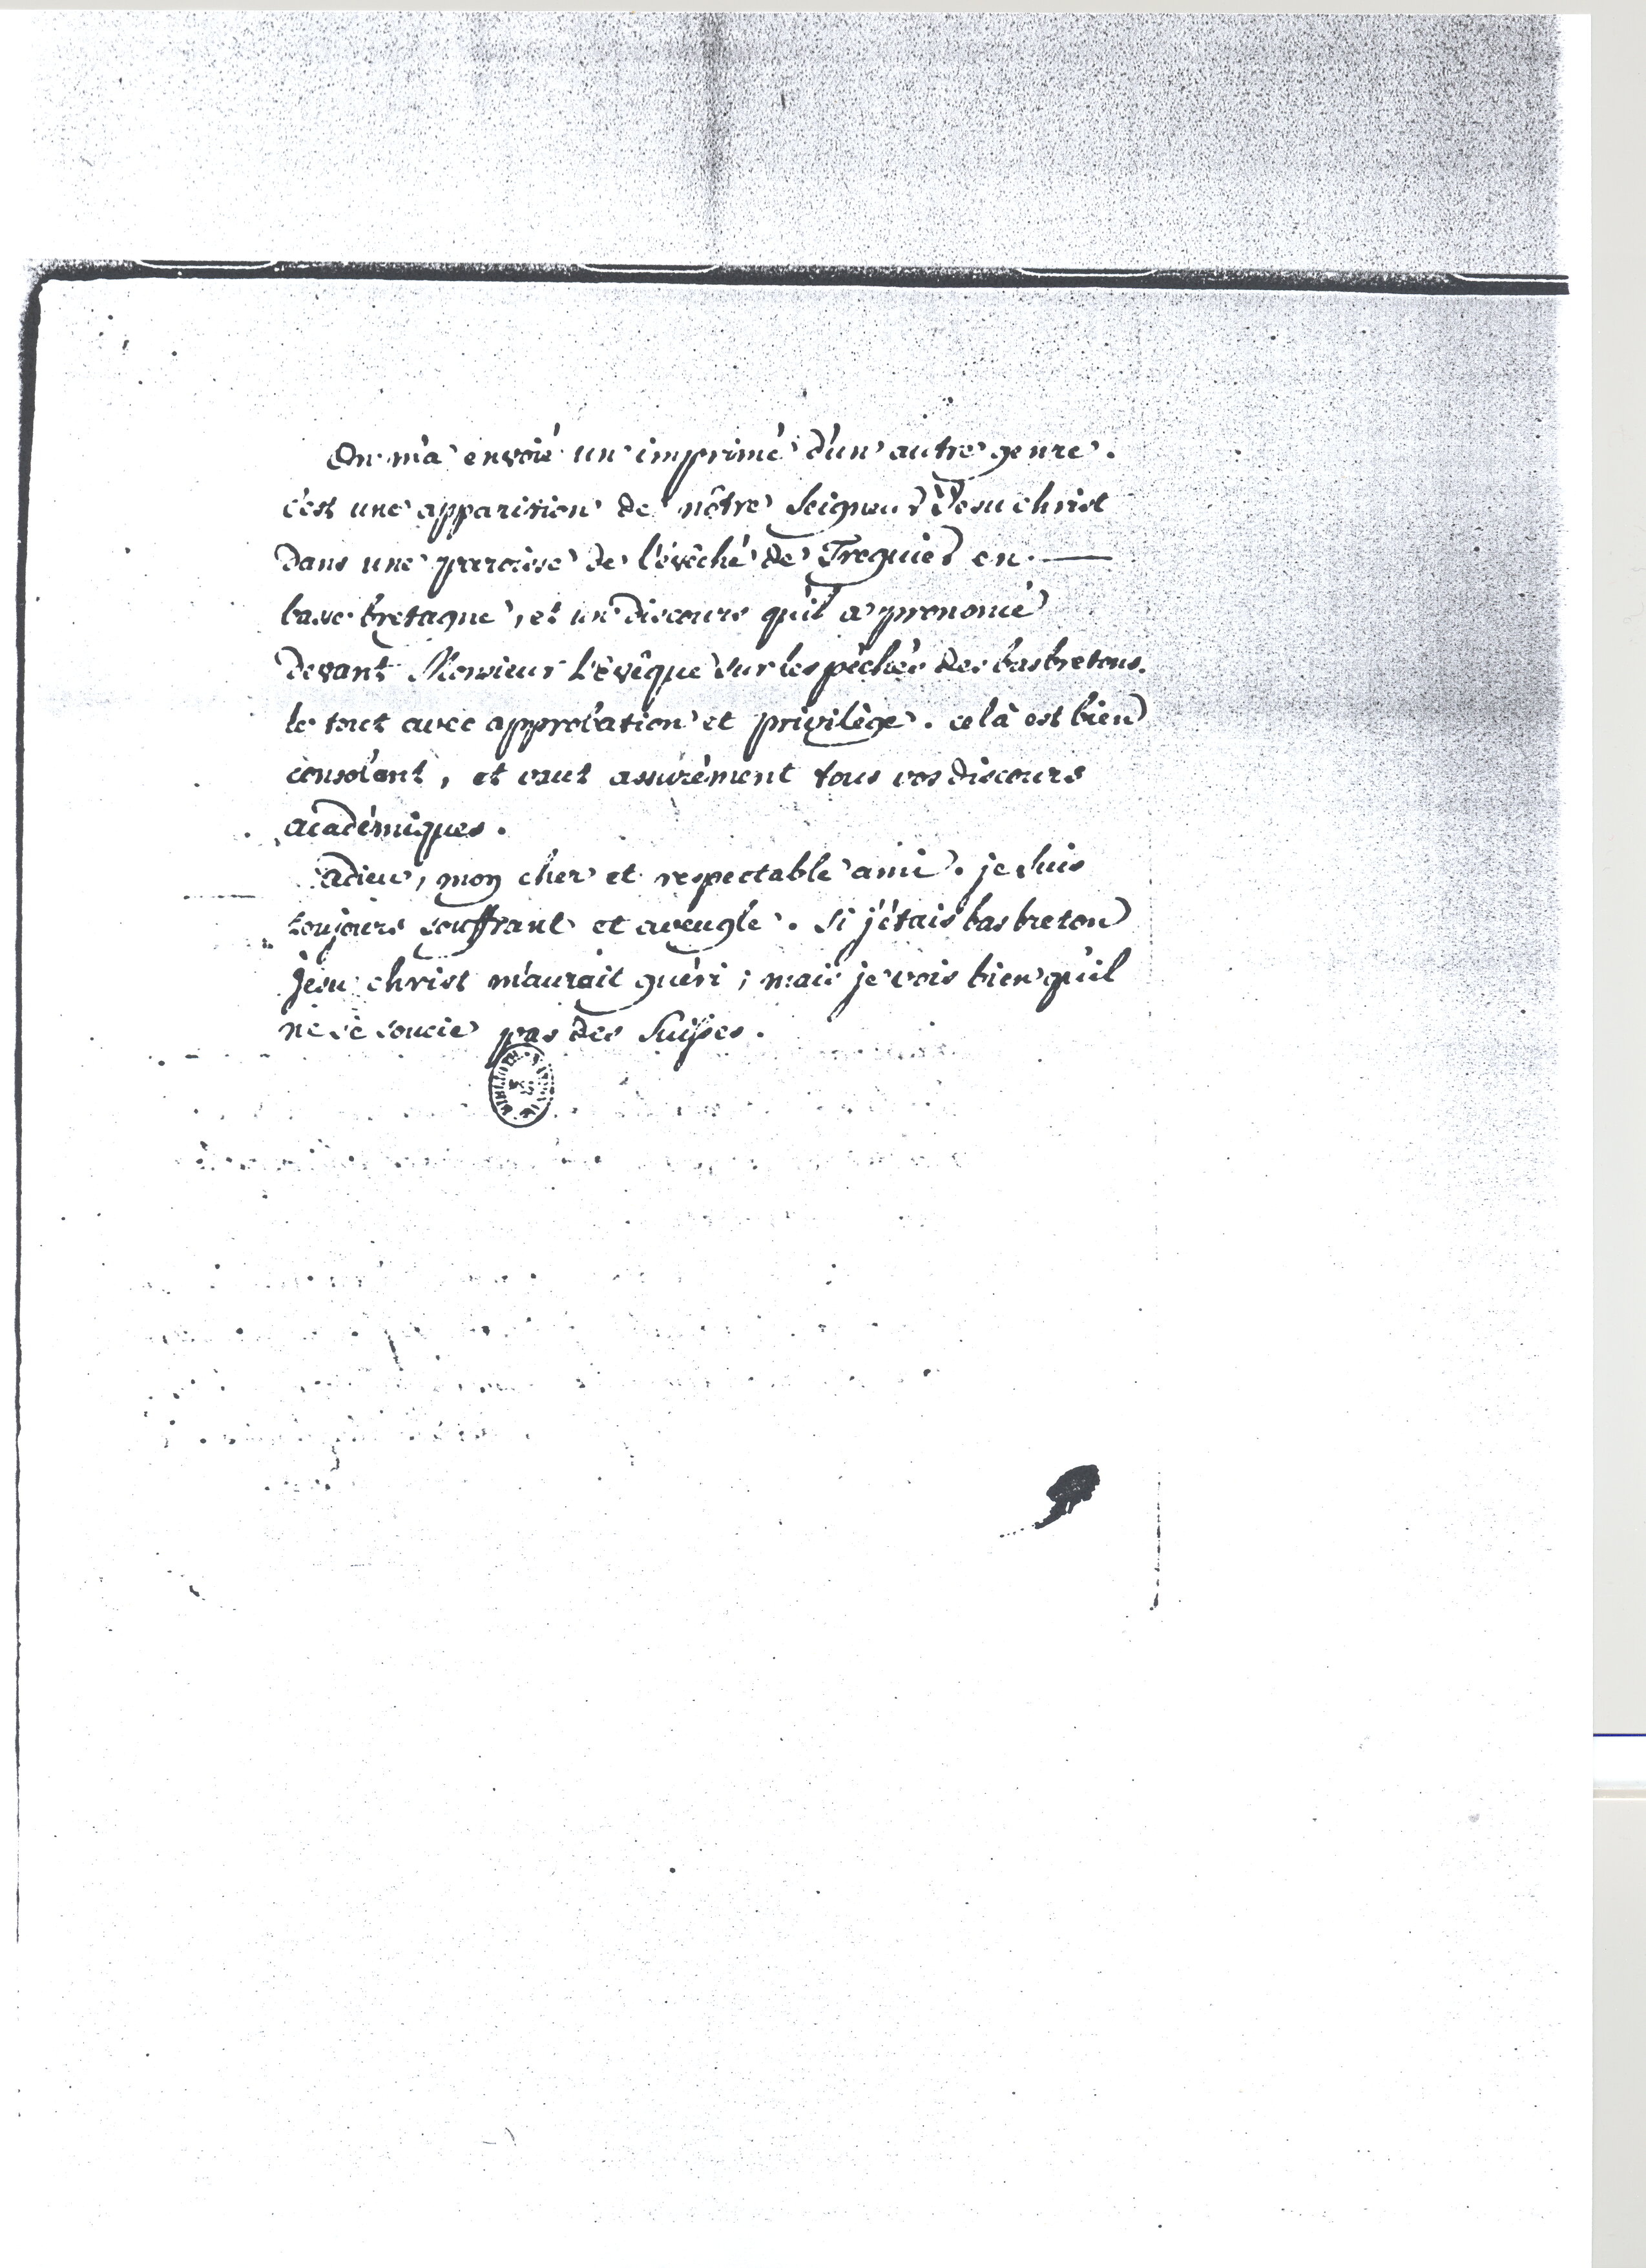 On m'a envoié un imprimé d'un autre genre.
c'est une apparition de nôtre Seigneur Jesu christ
dans une paroisse de l'évêché de Treguier en
basse bretagne, et un discours qu'il a prononcé
devant Monsieur L'évêque sur les péchés des bas bretons.
le tout avec approbation et privilège. celà est bien
consolant, et vaut assurément tous vos discours
académiques.
adieu, mon cher et respectable ami. je suis
toujours souffrant et aveugle. Si j'étais bas breton
Jesu christ m'aurait guéri; mais je vois bien qu'il
ne se soucie pas des Suisses.